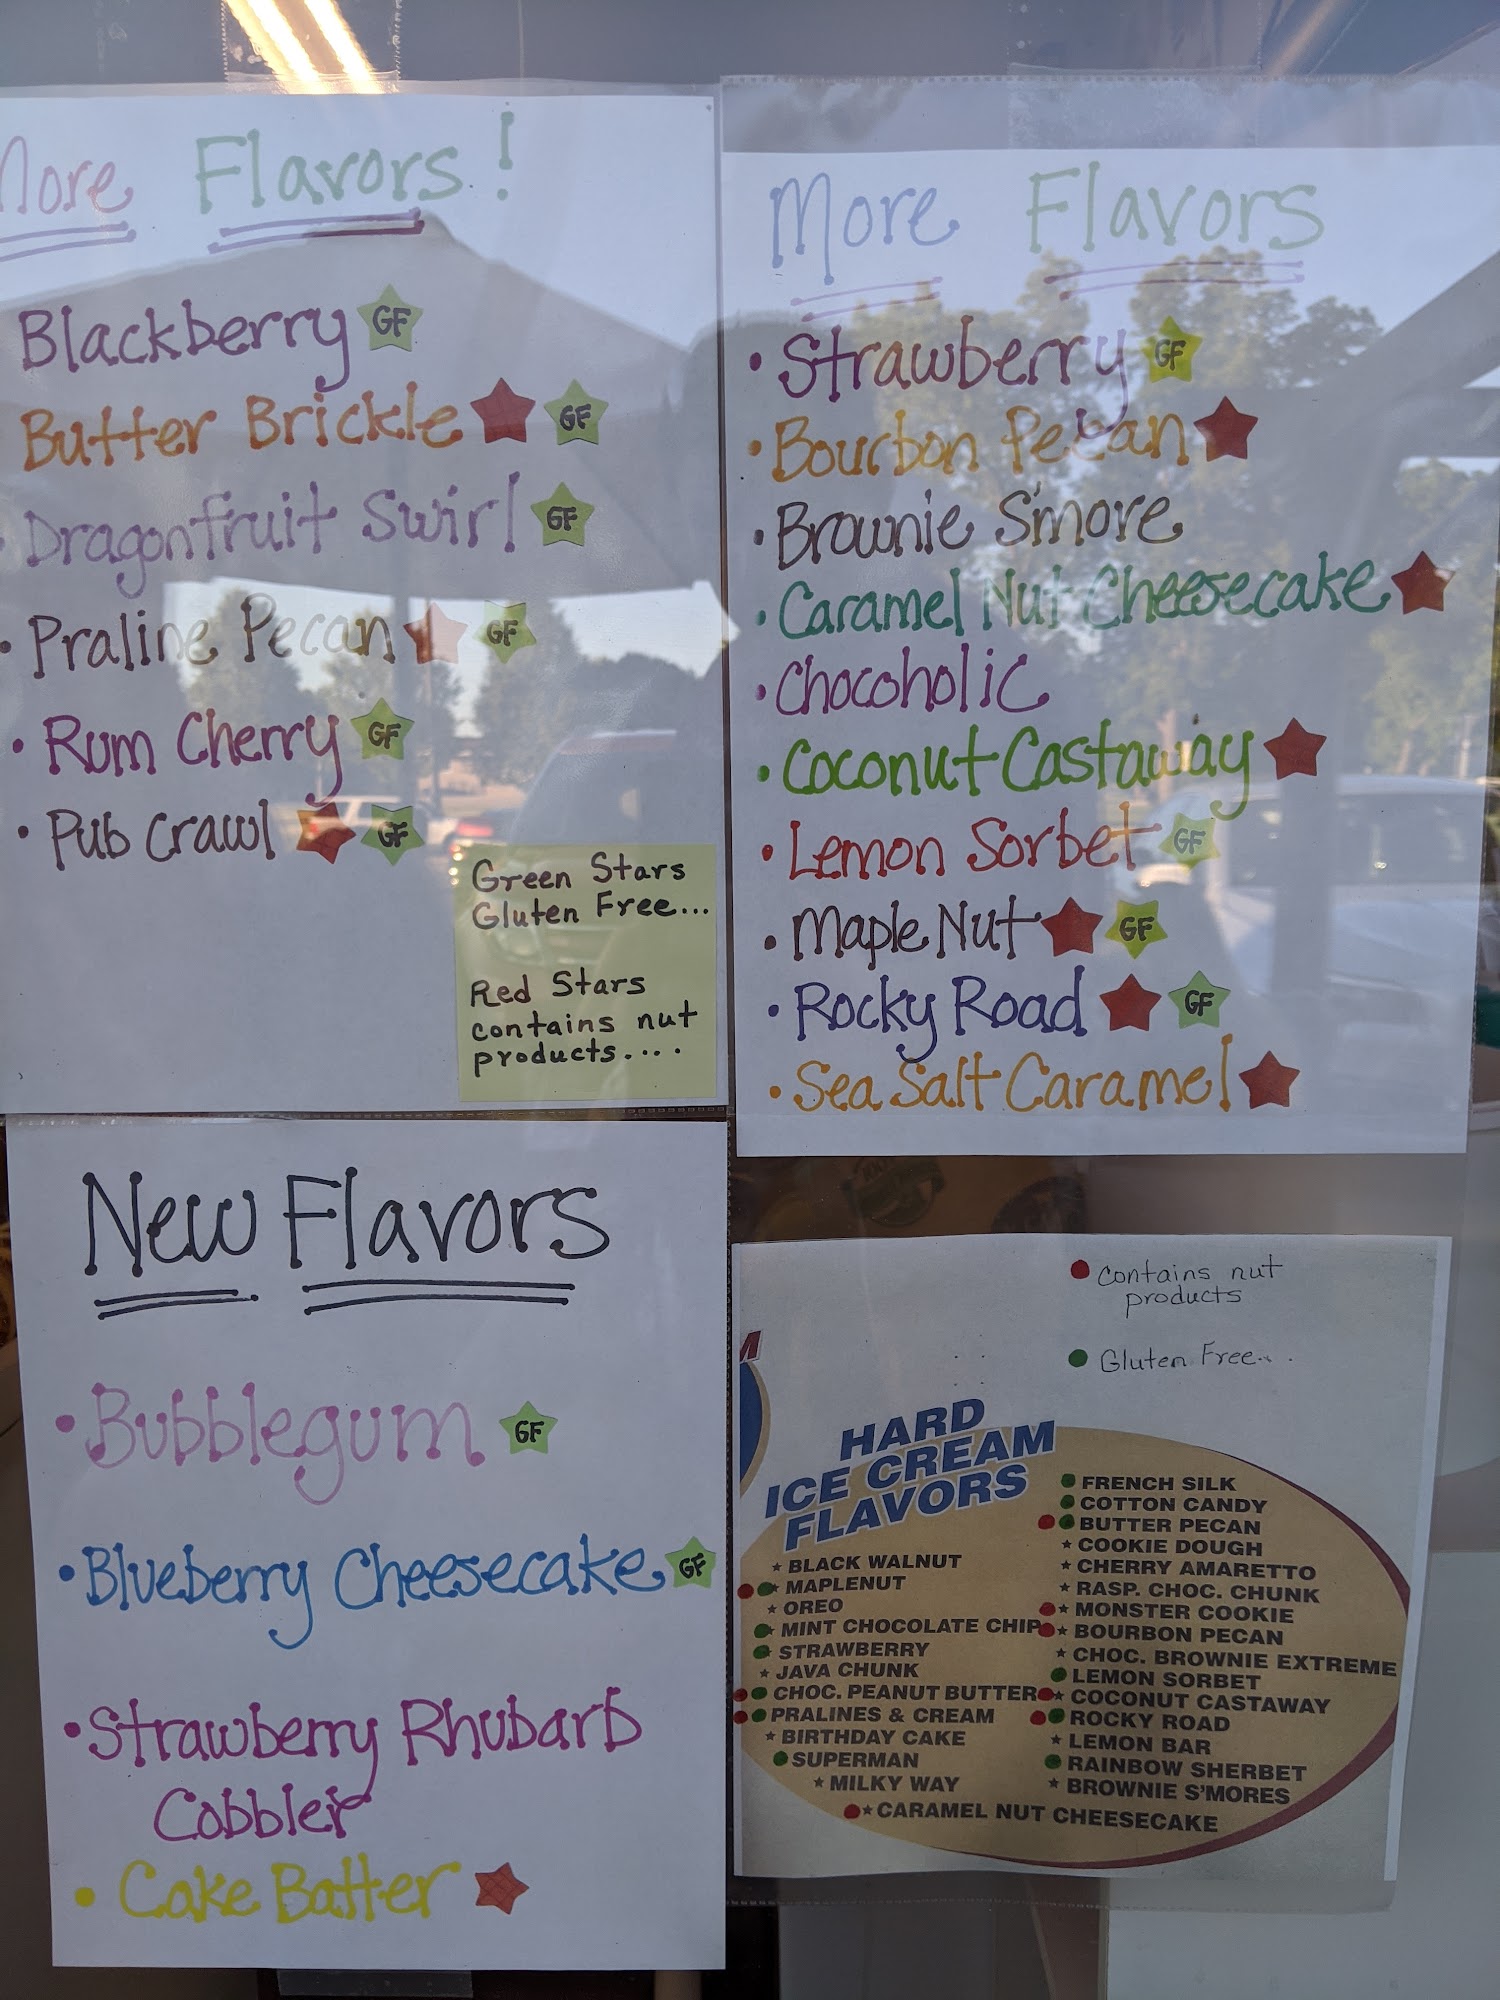 More Flavors!
Blackberry GF
Butter Brickle GF
Dragonfruit Swirl GF
• Praline Pecan GF
• Rum Cherry GF
• Pub Crawl GF
Green Stars
Gluten Free...
Red Stars
contains nut
products....
More Flavors
• Strawberry GF
• Bourbon Pecan
• Brownie S'more
• Caramel Nut Cheesecake
• Chocoholic
• Coconut Castaway
• Lemon Sorbet GF
• Maple Nut GF
• Rocky Road GF
• Sea Salt Caramel
New Flavors
• Bubblegum GF
• Blueberry Cheesecake GF
• Strawberry Rhubarb
Cobbler
• Cake Batter
Contains nut
products
Gluten Free...
M
HARD
ICE CREAM
FLAVORS
BLACK WALNUT
MAPLENUT
OREO
MINT CHOCOLATE CHIP
STRAWBERRY
JAVA CHUNK
CHOC. PEANUT BUTTER
PRALINES & CREAM
BIRTHDAY CAKE
SUPERMAN
MILKY WAY
FRENCH SILK
COTTON CANDY
BUTTER PECAN
COOKIE DOUGH
CHERRY AMARETTO
RASP. CHOC. CHUNK
MONSTER COOKIE
BOURBON PECAN
CHOC. BROWNIE EXTREME
LEMON SORBET
COCONUT CASTAWAY
ROCKY ROAD
LEMON BAR
RAINBOW SHERBET
BROWNIE S'MORES
CARAMEL NUT CHEESECAKE